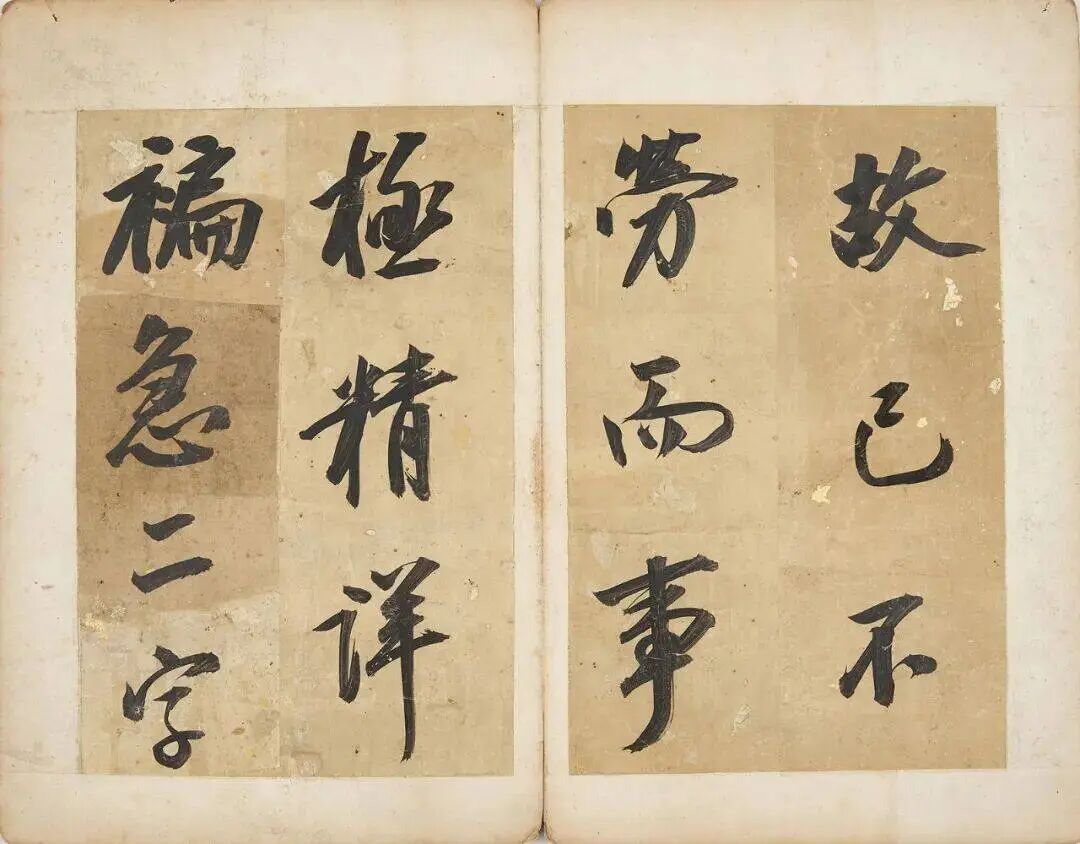 故己不
勞而事
極精詳
褊急二字